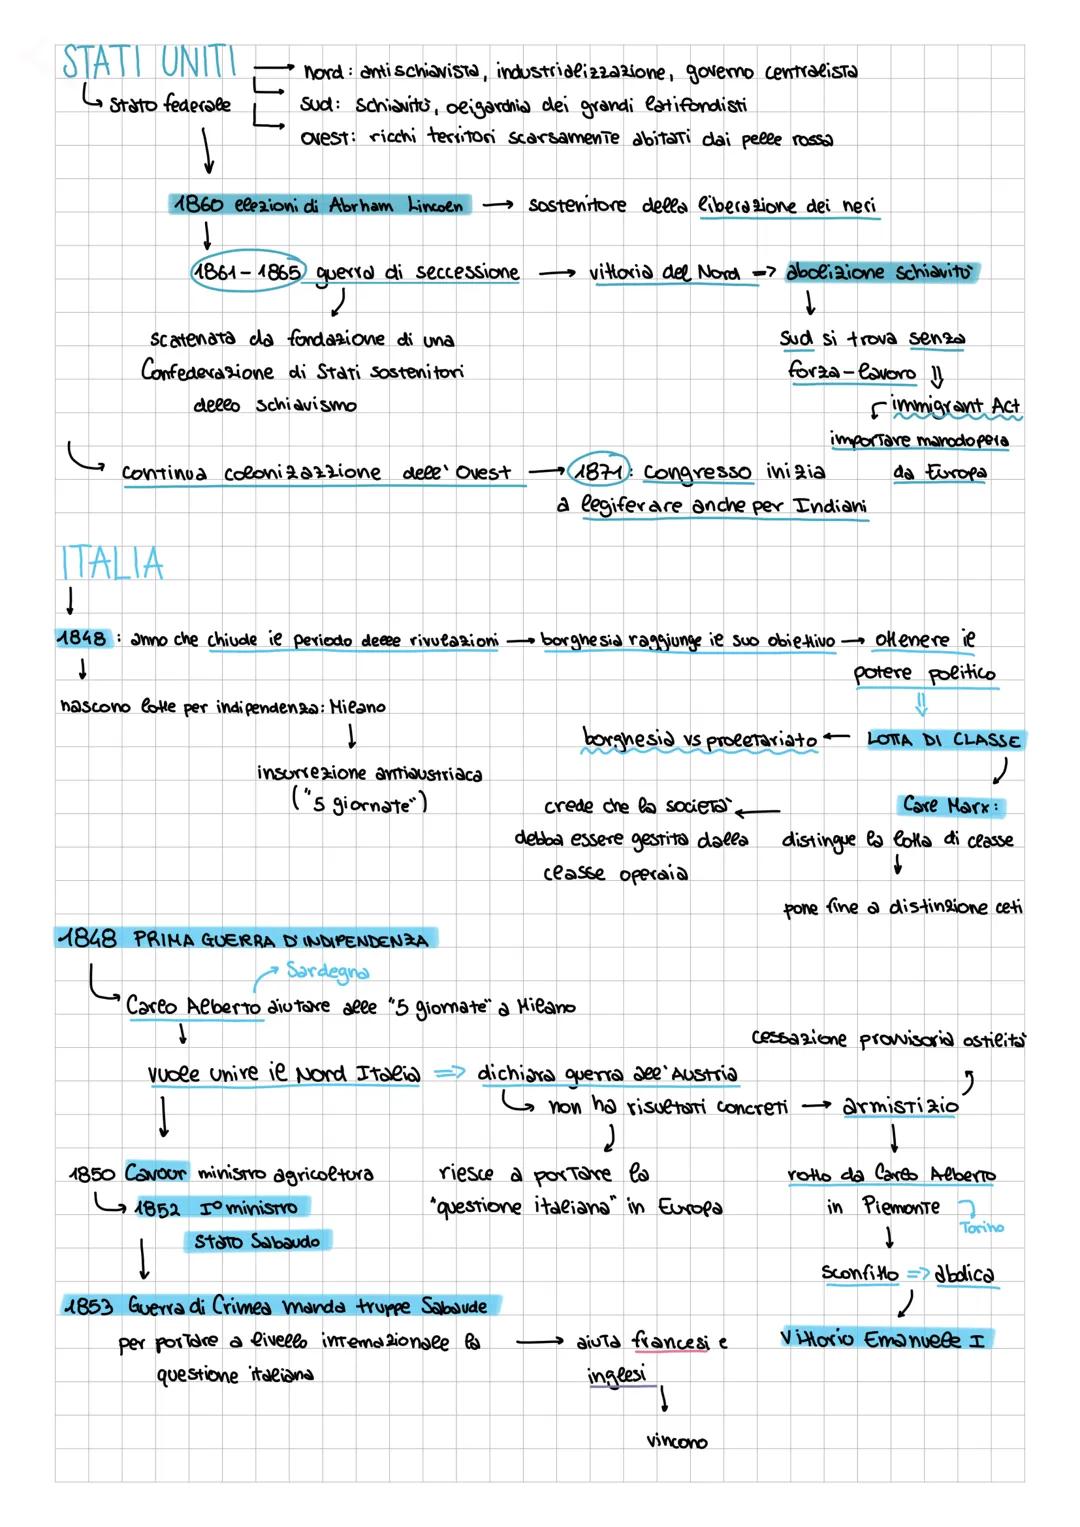 STATI UNITI
nord: antischiavista, industrializzazione, governo centralista
Stato federale
sud: schiavitù, oligarchia dei grandi latifondisti
ovest: ricchi territori scarsamente abitati dai pelle rossa
1860 elezioni di Abrham Lincoln → sostenitore della liberazione dei neri
1861-1865 guerra di seccessione → vittoria del Nord => abolizione schiavitù
scatenata da fondazione di una
Confederazione di Stati sostenitori
dello schiavismo
Sud si trova senza
forza-lavoro ⇓
immigrant Act
importare manodopera
da Europa
continua colonizazzione dell'Ovest → 1871: Congresso inizia
a legiferare anche per Indiani
ITALIA
1848: anno che chiude il periodo delle rivolazioni → borghesia raggiunge il suo obiettivo → ottenere il
potere politico
nascono lotte per indipendenza: Milano
insurrezione antiaustriaca
("5 giornate")
borghesia vs proletariato ← LOTTA DI CLASSE
Carl Marx:
crede che la società
distingue la lotta di classe
debba essere gestita dalla
classe operaia
pone fine a distinzione ceti
1848 PRIMA GUERRA D'INDIPENDENZA
→ Sardegna
Carlo Alberto aiutare alle "5 giornate" a Milano
cessazione provvisoria ostilità
vuole unire il Nord Italia => dichiara guerra all'Austria
non ha risultati concreti → armistizio
1850 Cavour ministro agricoltura
1852 I° ministro
Stato Sabaudo
riesce a portare la
"questione italiana" in Europa
rotto da Carlo Alberto
in Piemonte
Torino
sconfitto => abdica
Vittorio Emanuele I
1853 Guerra di Crimea manda truppe Sabaude
per portare a livello internazionale la
questione italiana
→ aiuta francesi e
inglesi
vincono